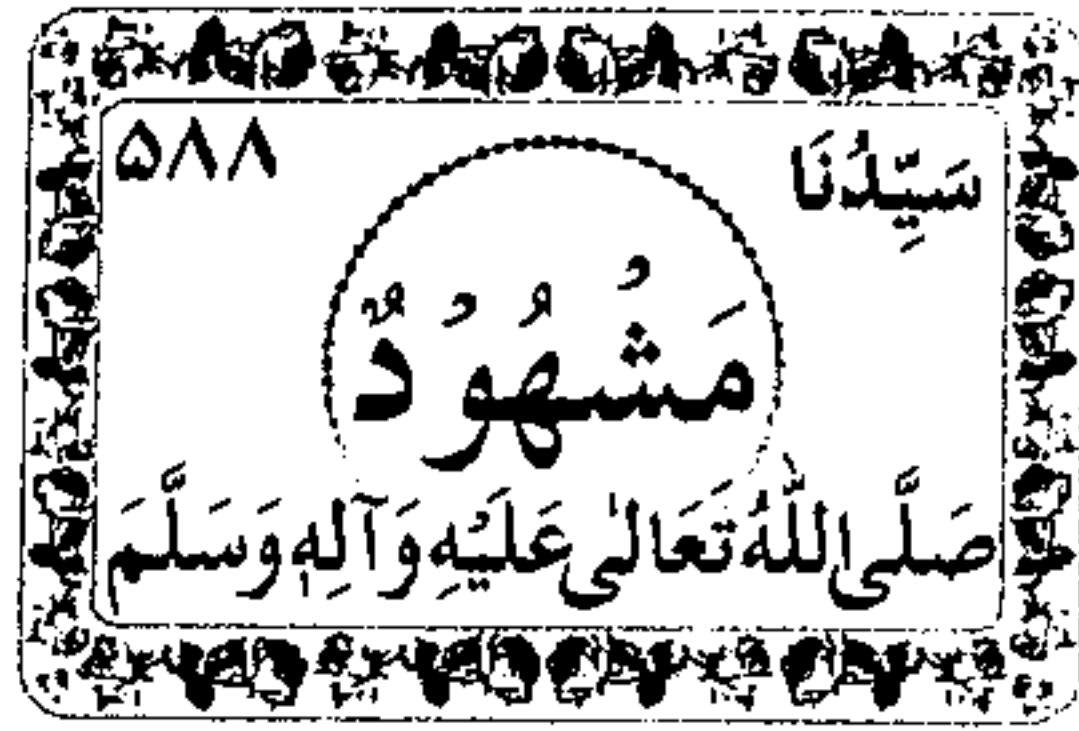 سَيِّدُنَا ۵۸۸
مَشْهُوْدٌ
صَلَّى اللّٰهُ تَعَالٰى عَلَيْهِ وَآلِهٖ وَسَلَّمَ